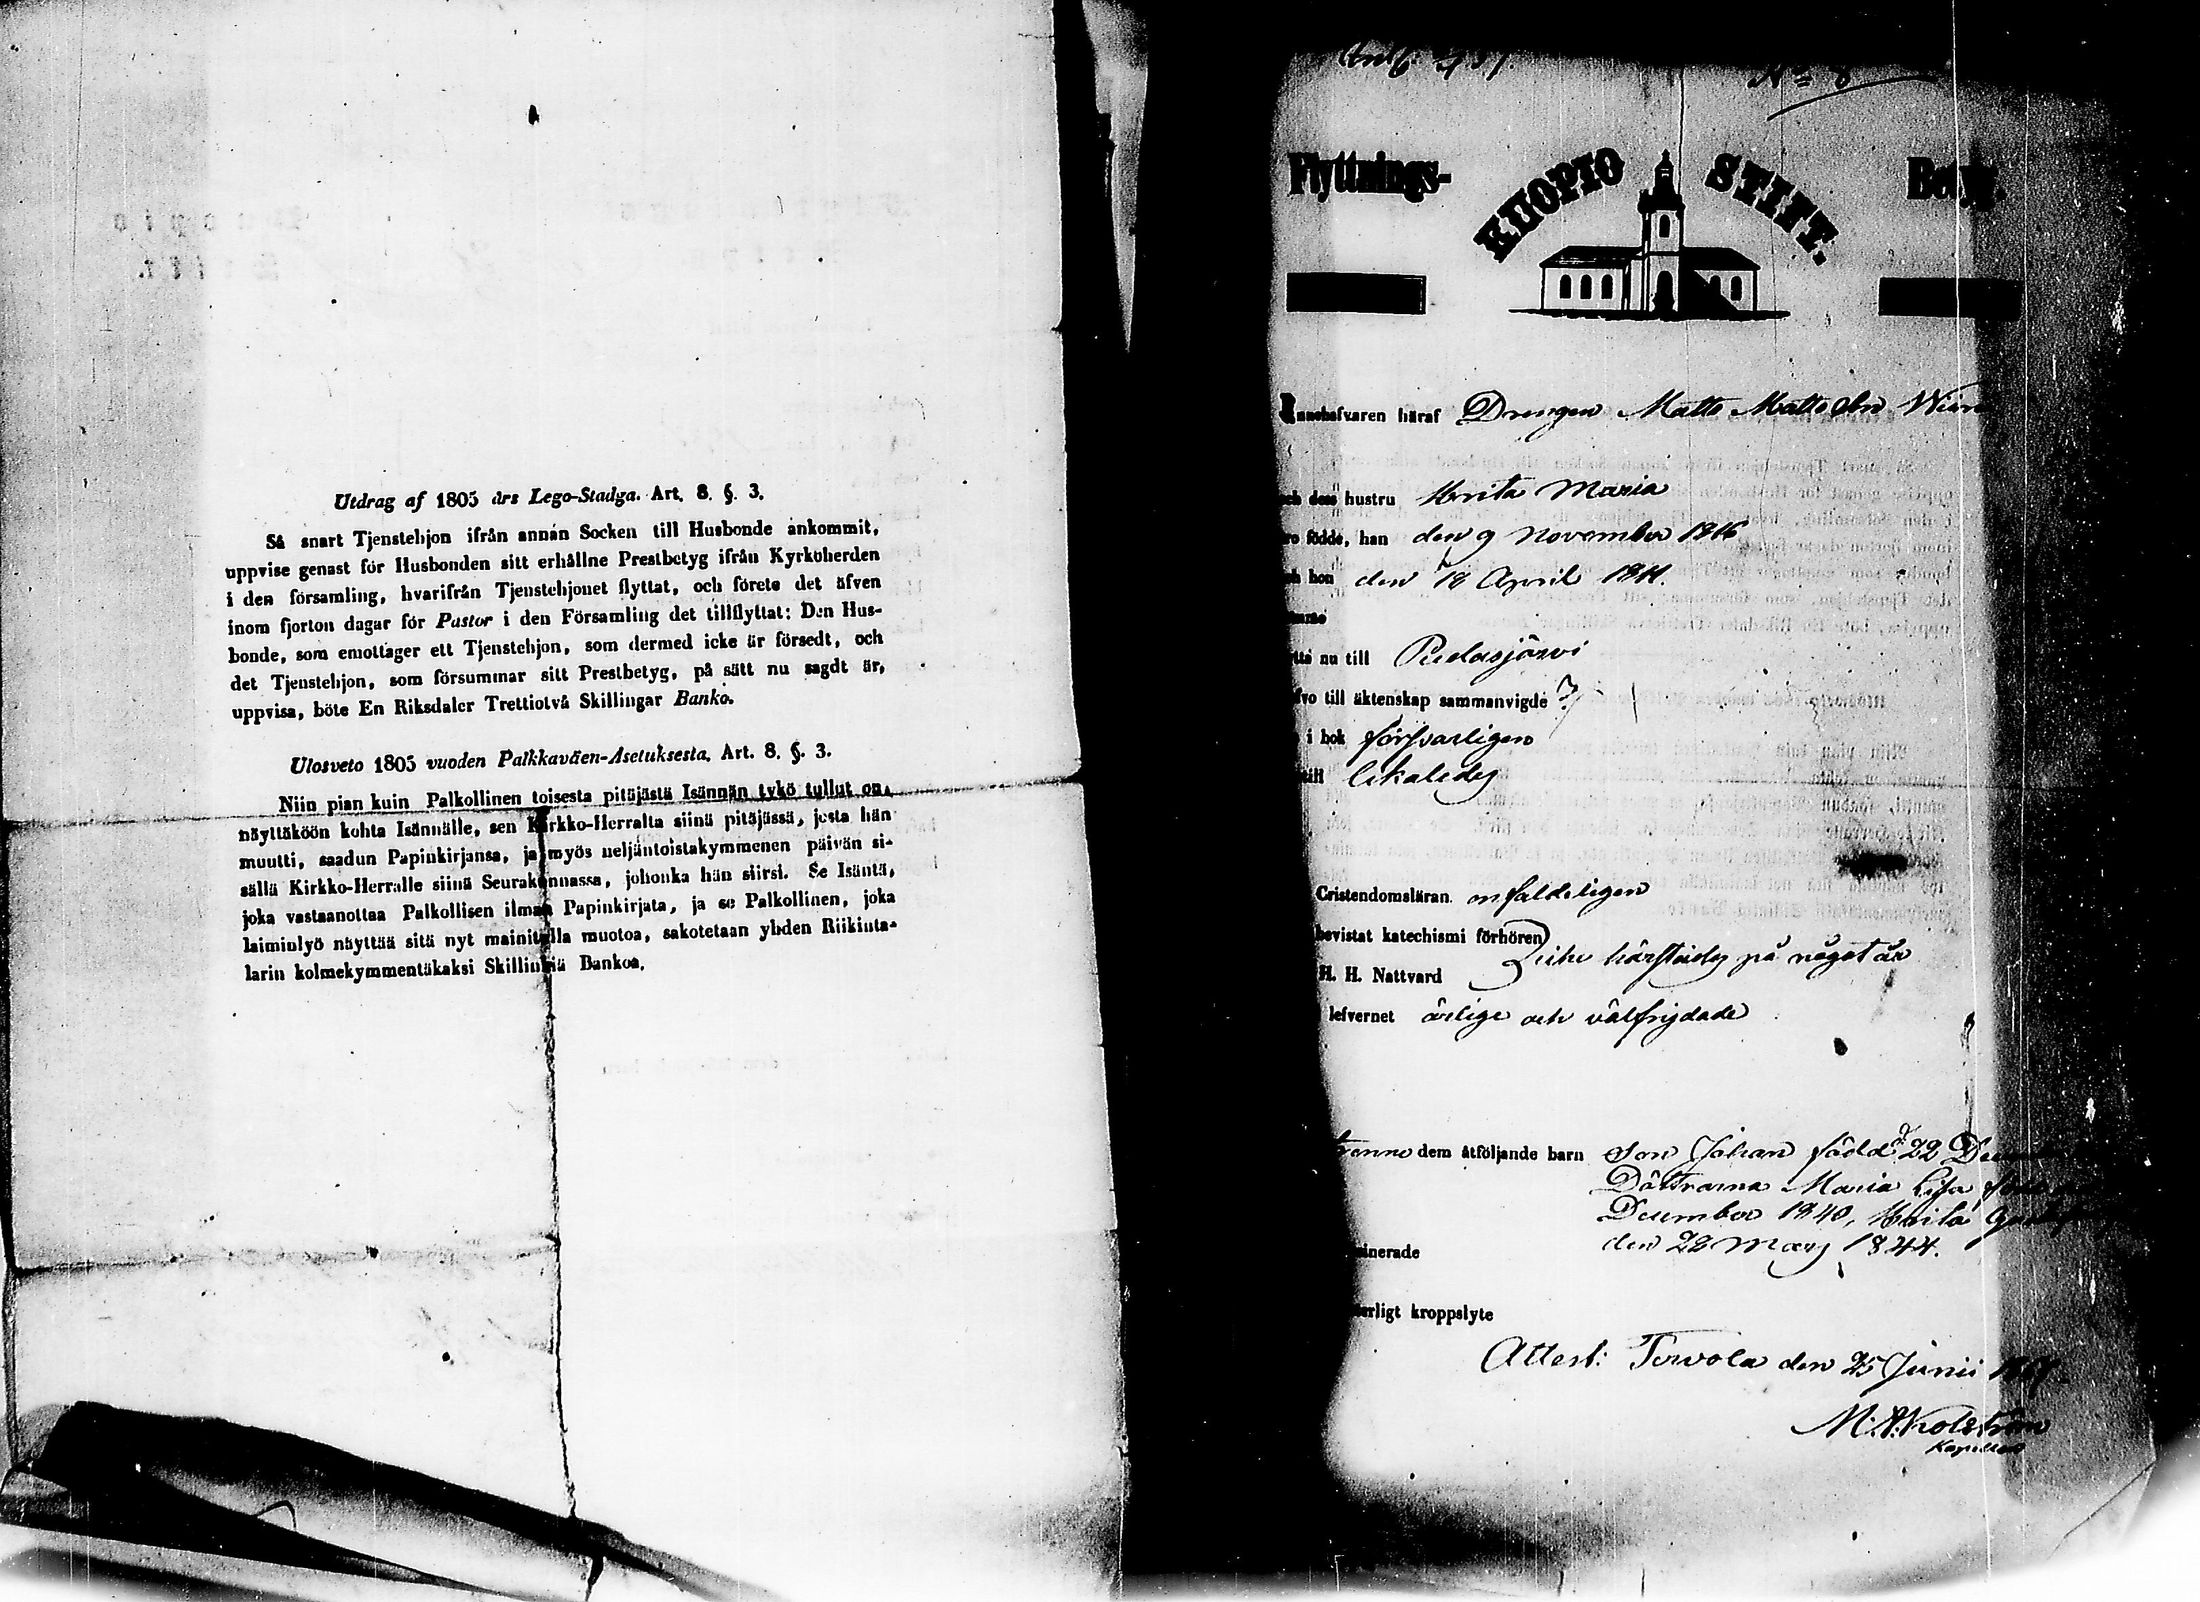 Utdrag af 1805 års Lego-Stadga. Art. 8. §. 3.
Så snart Tjenstehjon ifrån annan Socken till Husbonde ankommit,
uppvise genast för Husbonden sitt erhållne Prestbetyg ifrån Kyrkoherden
i den församling, hvarifrån Tjenstehjonet flyttat, och förete det äfven
inom fjorton dagar för Pastor i den Församling det tillflyttat: Den Hus-
bonde, som emottager ett Tjenstehjon, som dermed icke är försedt, och
det Tjenstehjon, som försummar sitt Prestbetyg, på sätt nu sagdt är,
uppvisa, böte En Riksdaler Trettiotvå Skillingar Banko.
Ulosveto 1805 vuoden Palkkaväen-Asetuksesta. Art. 8. §. 3.
Niin pian kuin Palkollinen toisesta pitäjästä Isännän tykö tullut on,
näyttäköön kohta Isännälle, sen Kirkko-Herralta siinä pitäjässä, josta hän
muutti, saadun Papinkirjansa, ja myös neljäntoistakymmenen päivän si-
sällä Kirkko-Herralle siinä Seurakunnassa, johonka hän siirsi. Se Isäntä,
joka vastaanottaa Palkollisen ilman Papinkirjata, ja se Palkollinen, joka
laiminlyö näyttää sitä nyt mainitulla muotoa, sakotetaan yhden Riikinta-
larin kolmekymmentäkaksi Skillinkiä Bankoa.
Flyttnings-
KUOPIO STIFT.
Betyg.
Innehafvaren häraf Drengen Matts Mattsson
och dess hustru Brita Maria
ro födde, han den 9 November 1816
och hon den 18 April 1811.
nu till Pudasjärvi
till äktenskap sammanvigde ?
i bok försvarligen
till
Cristendomsläran enfaldeligen
bevistat katechismi förhören
icke härstädes på något år
H. H. Nattvard
lefvernet ärlige och välfrejdade
dem åtföljande barn Son Johan född 22
Döttrarna Maria Lisa
December 1840, Brita
den 22 Mars 1844.
kroppslyte
Attest: Tervola den 25 Junii
Kapellan